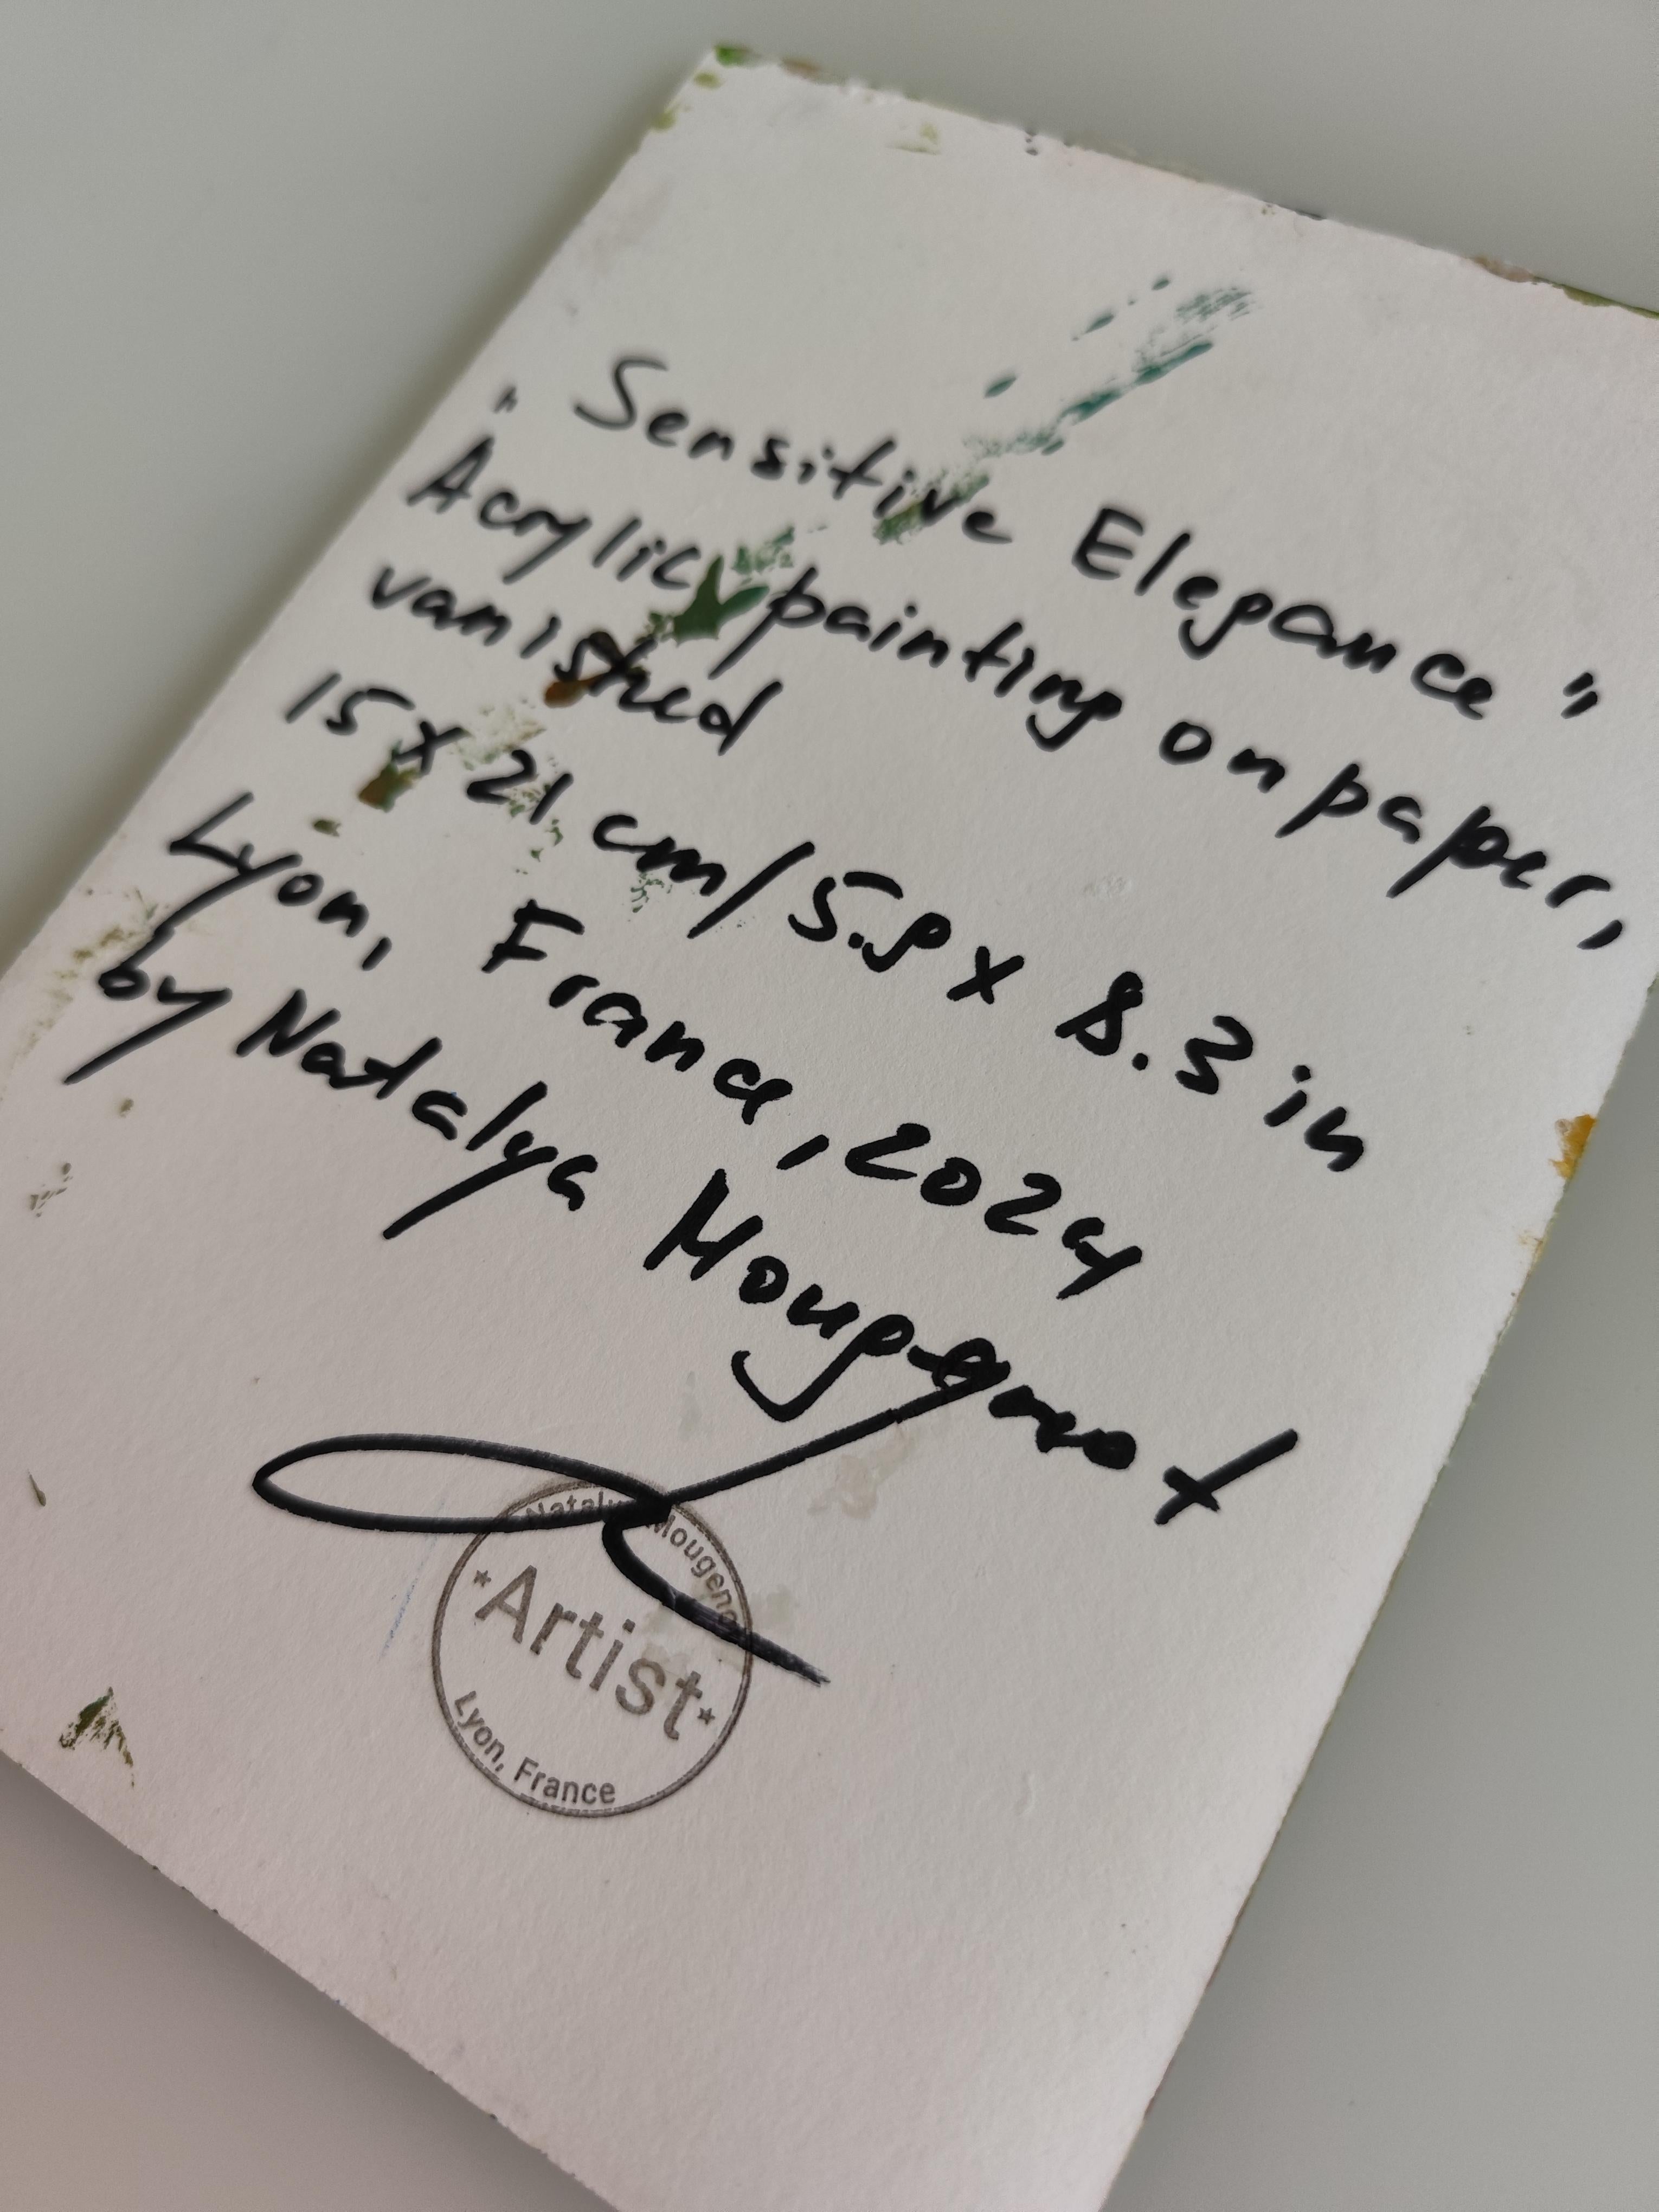 "Sensitive Elegance"
Acrylic painting on paper,
varnished
15 x 21 cm/5.9 x 8.3 in
Lyon, France, 2024
by Natalya Mougenot
Natalya Mougenot
*Artist*
Lyon, France